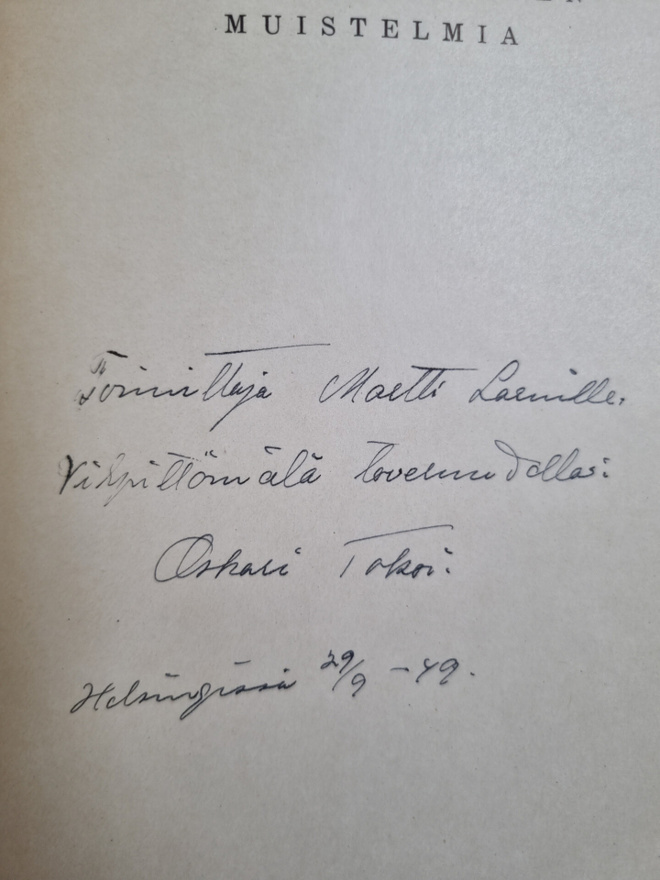 MUISTELMIA
Toimittaja Matti Laenille.
Vilpittömälä toveruudella:
Oskari Tokoi.
Helsingissä 29/9 -49.